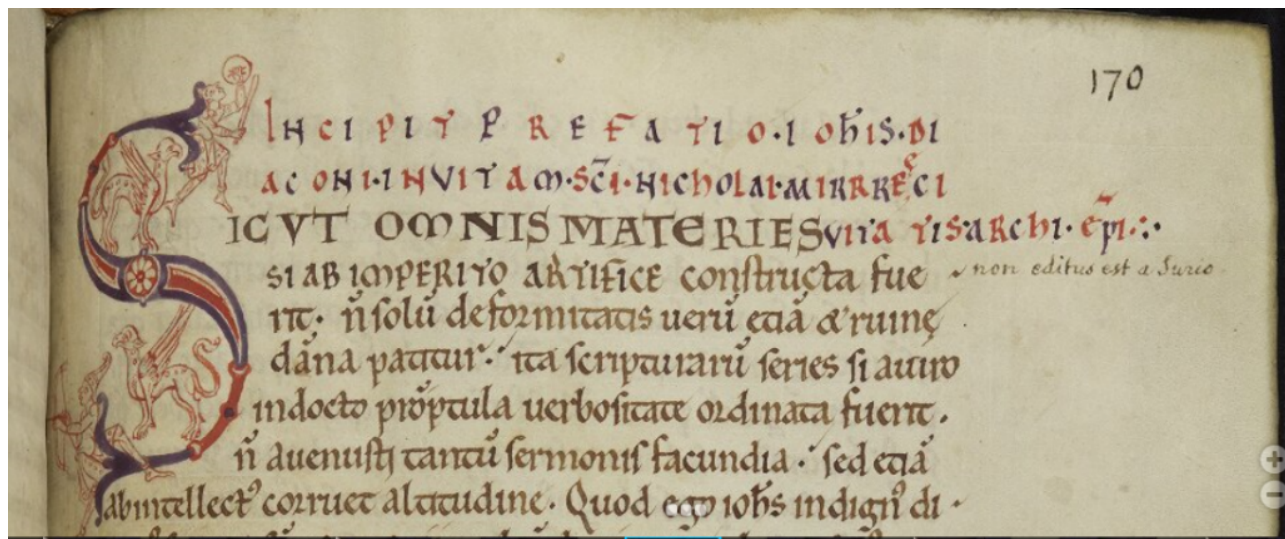 170
INCIPIT PREFATIO·IOHIS·DI
ACONI·IN VITAM·SCI·NICHOLAI·MIRRRECI
SICVT OMNIS MATERIES VITATIS·ARCHI·EPI·:·
SI AB IMPERITO ARTIFICE constructa fue
non editus est a Surio
rit· n̄ solū deformitatis uerū etiā & ruinę
dāna patitur·' ita scripturarū series si a uiro
indocto prōptula uerbositate ordinata fuerit·
n̄ a uenusti tantū sermonis facundia·' sed etiā
ab intellectꝰ corruet altitudine· Quod ego ioh̄s indignꝰ di·